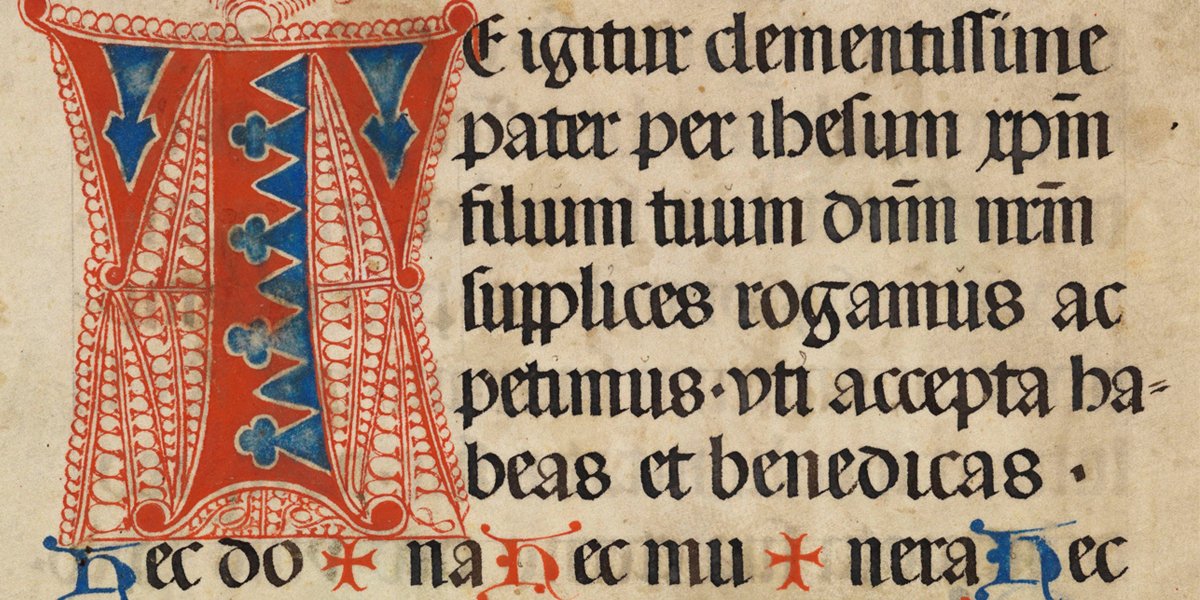 TE igitur clementissime
pater per ihesum xp̄m
filium tuum dn̄m nr̄m
supplices rogamus ac
petimus·vti accepta ha=
beas et benedicas.
Hec do✠na Hec mu✠nera Hec